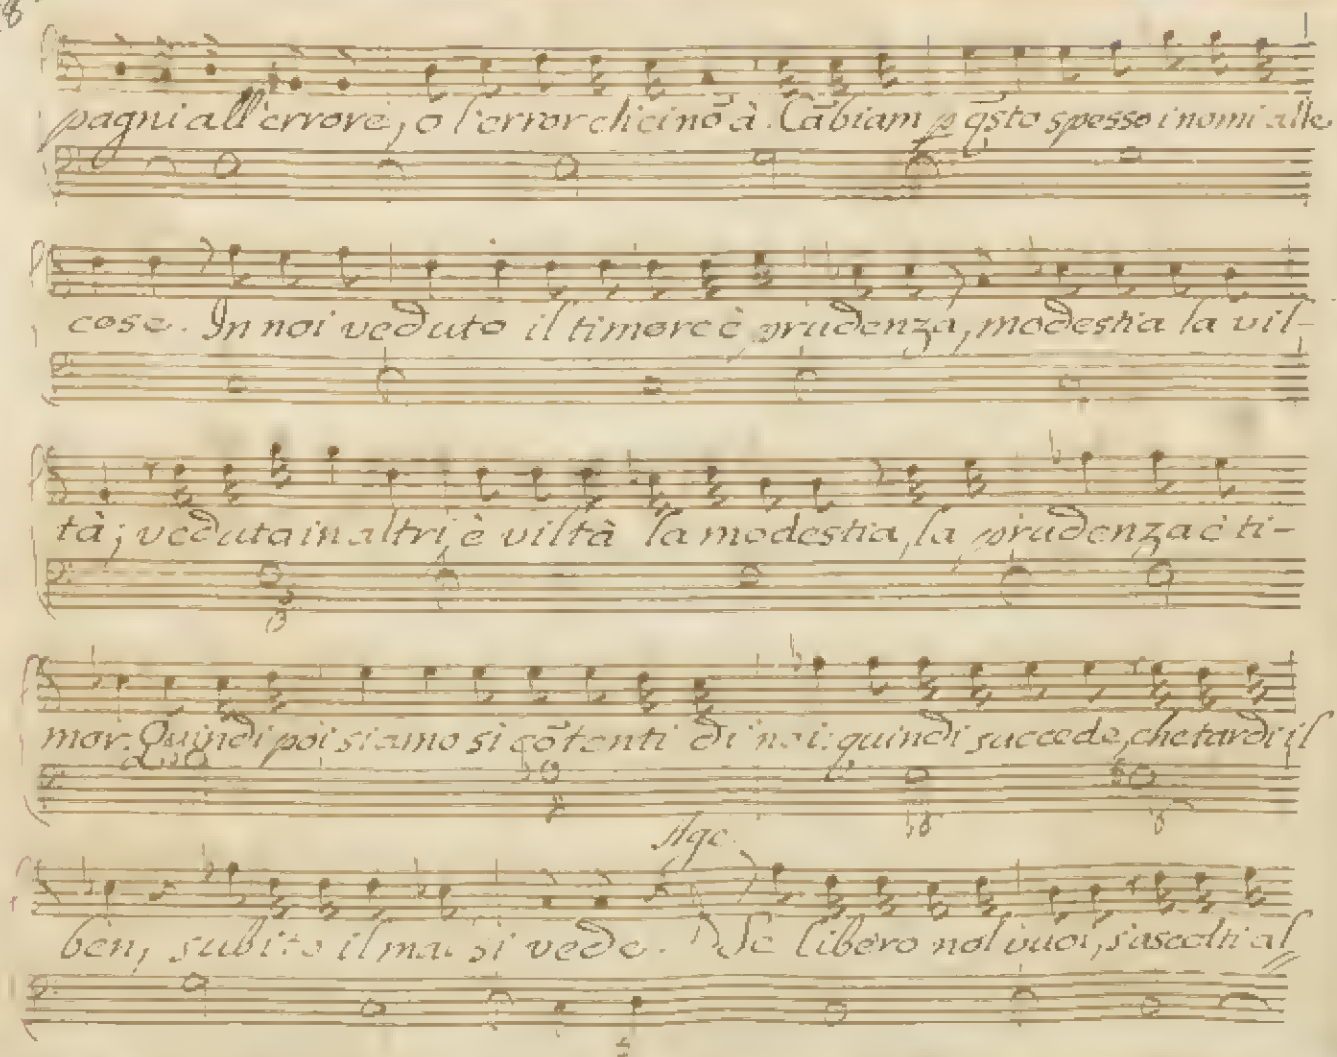 8
pagni all'errore, o l'error chi ci nō à. Cābiam p qsto spesso i nomi alle
cose. In noi veduto il timore è prudenza, modestia la vil-
tà; veduta in altri, è viltà la modestia, la prudenza è ti-
mor. Quindi poi siamo sì cōtenti di noi: quindi succede, che tardi il
ben, subito il mal si vede.
Se libero nol vuoi, s'ascolti al